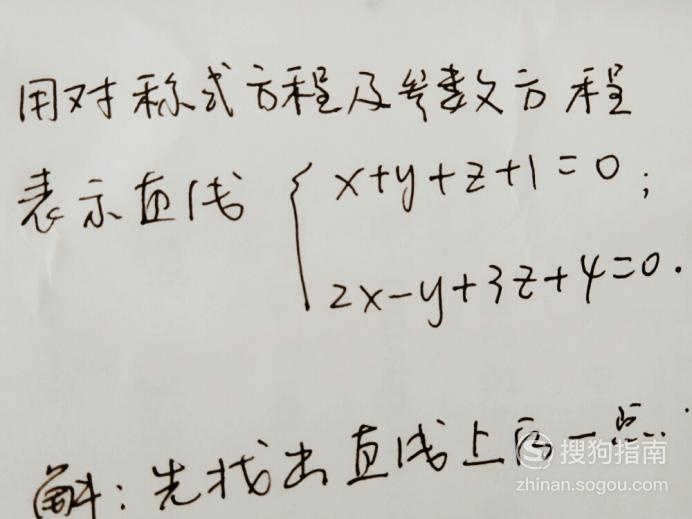 用对称式方程及参数方程
表示直线 { x+y+z+1=0;
2x-y+3z+4=0.
解:先找出直线上的一点.
搜狗指南
zhinan.sogou.com